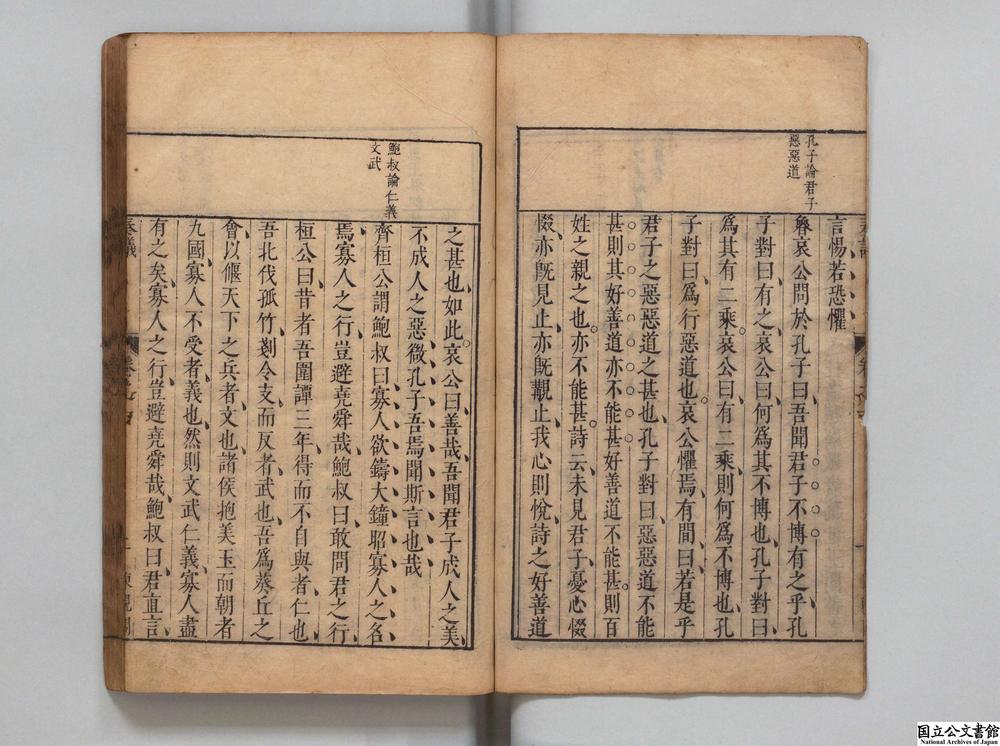 孔子論君子
惡惡道
言惕若恐懼
魯哀公問於孔子曰吾聞君子不博有之乎孔
子對曰有之哀公曰何爲其不博也孔子對曰
爲其有二乘哀公曰有二乘則何爲不博也孔
子對曰爲行惡道也哀公懼焉有間曰若是乎
君子之惡惡道之甚也孔子對曰惡惡道不能
甚則其好善道亦不能甚好善道不能甚則百
姓之親之也亦不能甚詩云未見君子憂心惙
惙亦旣見止亦旣覯止我心則悅詩之好善道
鮑叔論仁義
文武
之甚也如此哀公曰善哉吾聞君子成人之美
不成人之惡微孔子吾焉聞斯言也哉
齊桓公謂鮑叔曰寡人欲鑄大鐘昭寡人之名
焉寡人之行豈避堯舜哉鮑叔曰敢問君之行
桓公曰昔者吾圍譚三年得而不自與者仁也
吾北伐孤竹剗令支而反者武也吾爲葵丘之
會以偃天下之兵者文也諸侯抱美玉而朝者
九國寡人不受者義也然則文武仁義寡人盡
有之矣寡人之行豈避堯舜哉鮑叔曰君直言
国立公文書館
National Archives of Japan